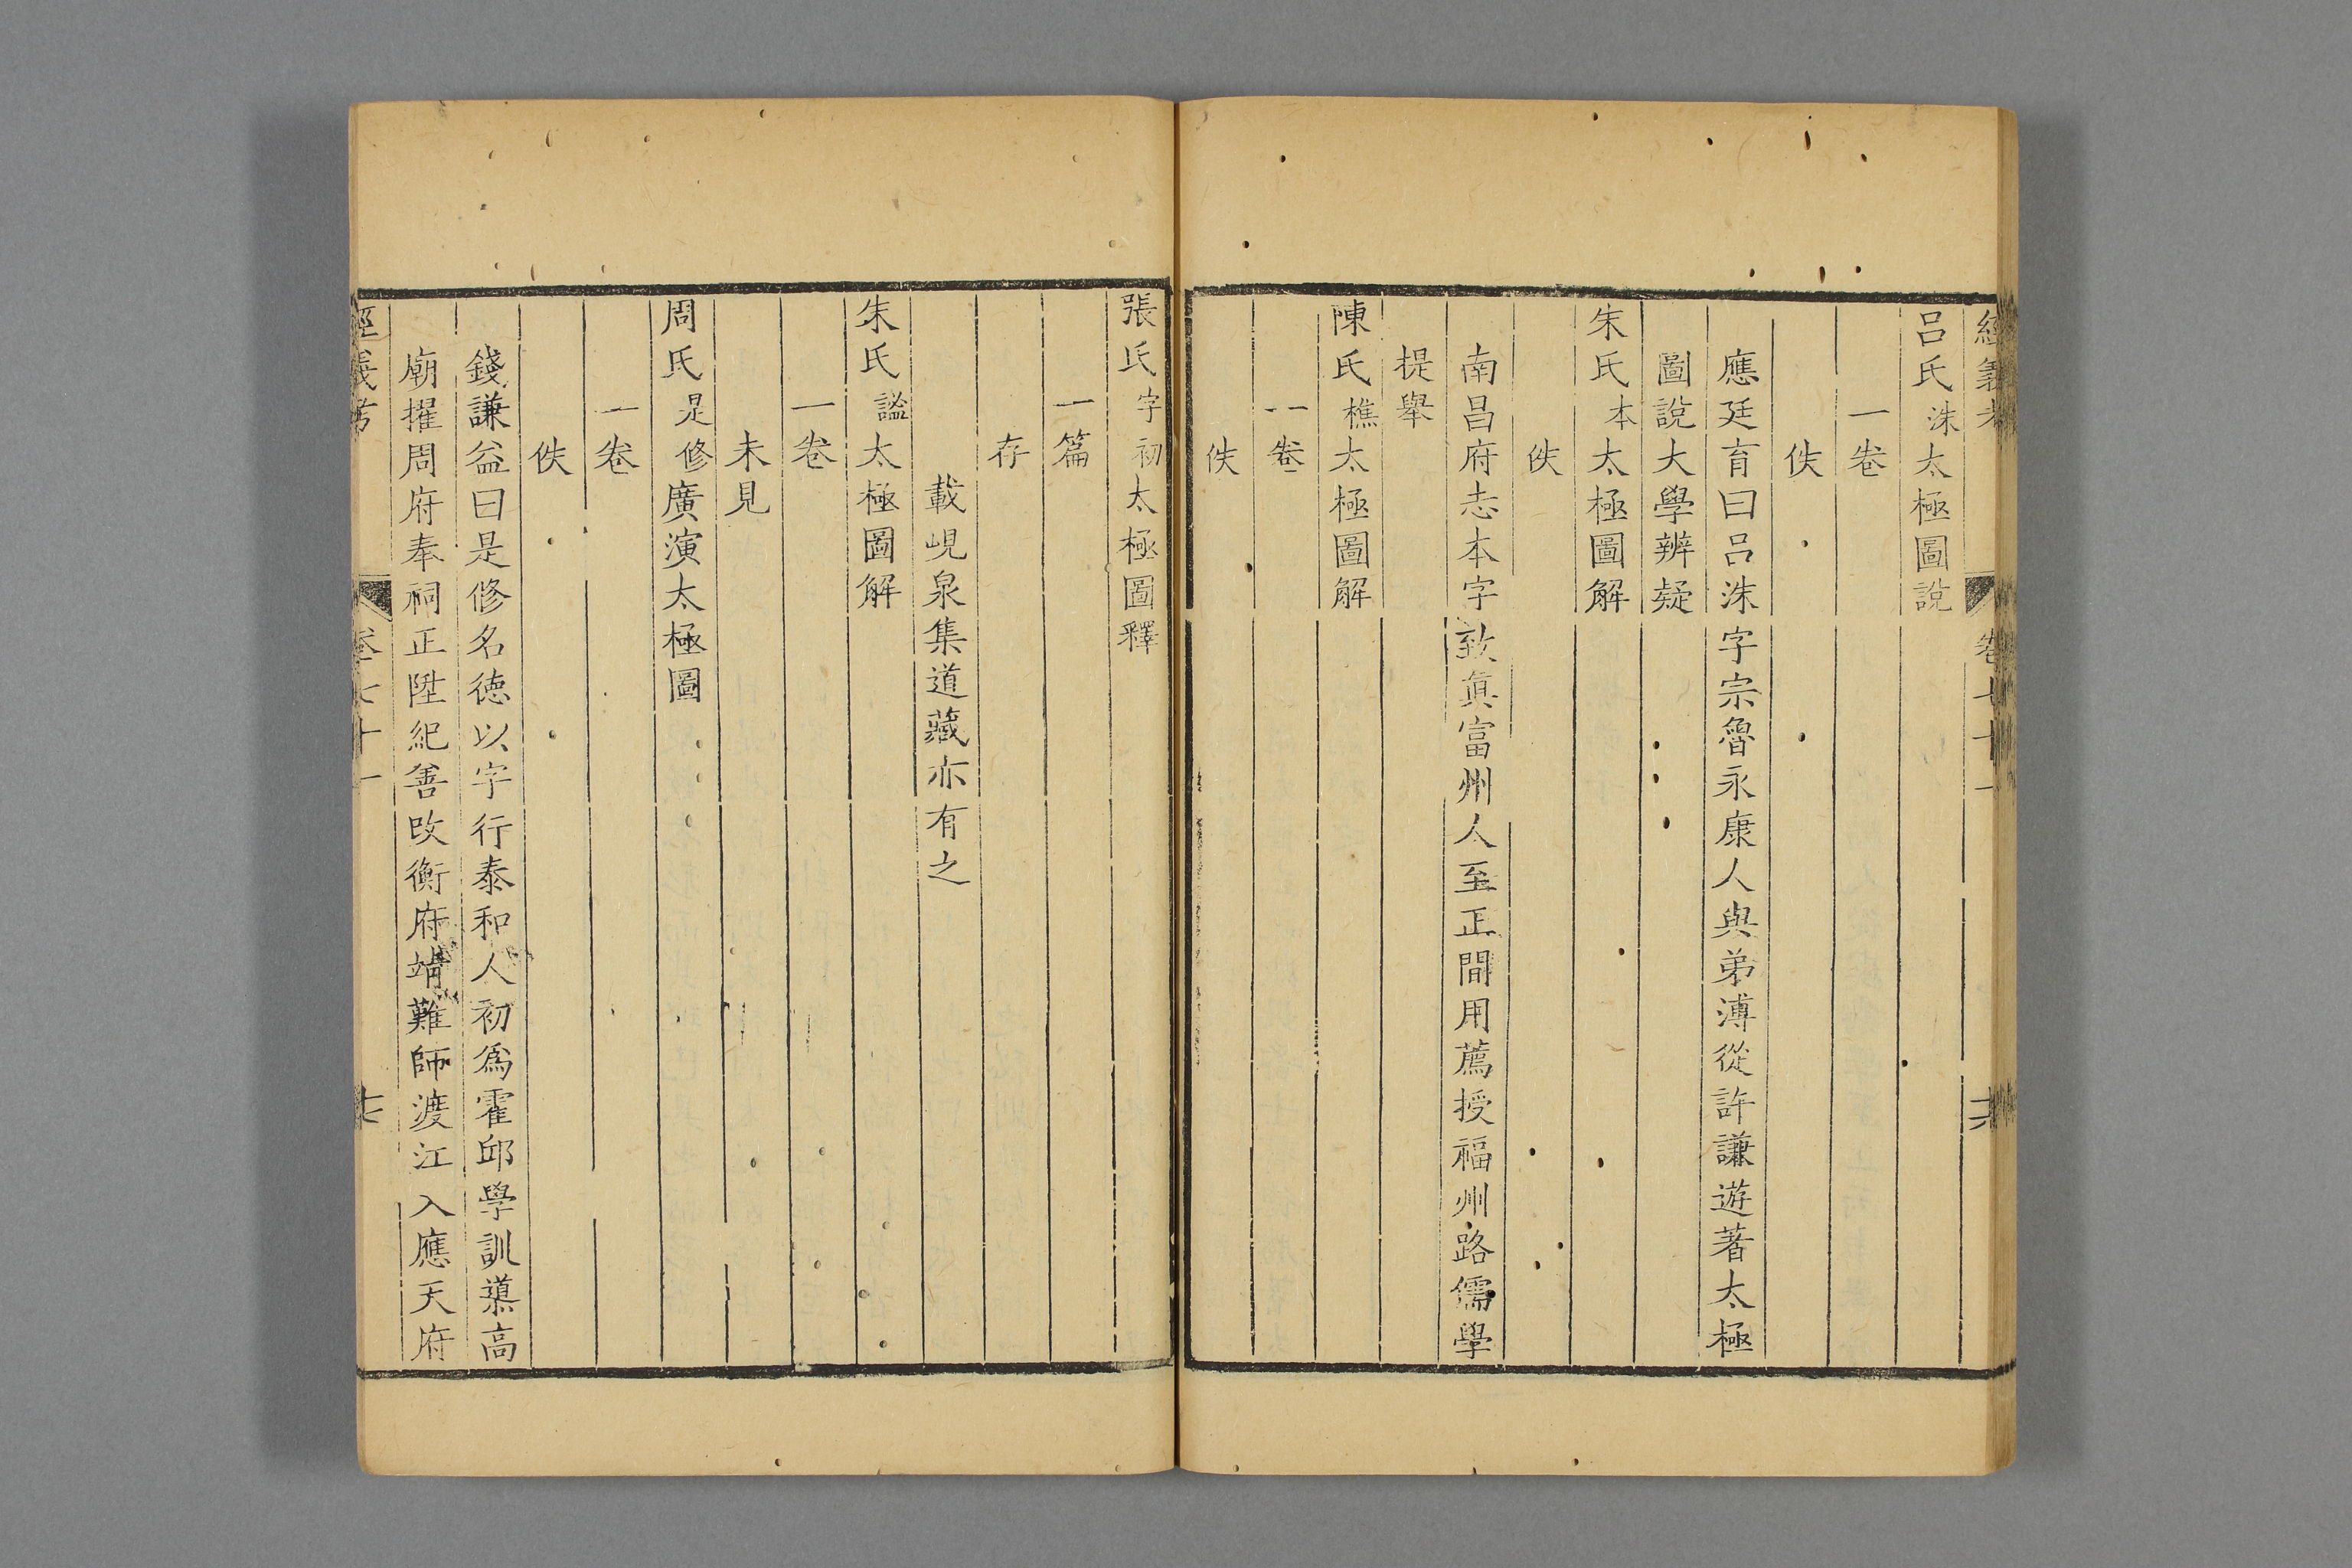 經義考 卷七十一 十六
呂氏洙太極圖說
一卷
佚
應廷育曰呂洙字宗魯永康人與弟溥從許謙遊著太極
圖說大學辨疑
朱氏本太極圖解
佚
南昌府志本字致眞富州人至正間用薦授福州路儒學
提舉
陳氏樵太極圖解
一卷
佚
張氏宇初太極圖釋
一篇
存
載峴泉集道藏亦有之
朱氏謐太極圖解
一卷
未見
周氏是修廣演太極圖
一卷
佚
錢謙益曰是修名德以字行泰和人初爲霍邱學訓導高
廟擢周府奉祠正陞紀善改衡府靖難師渡江入應天府
經義考 卷七十一 十七